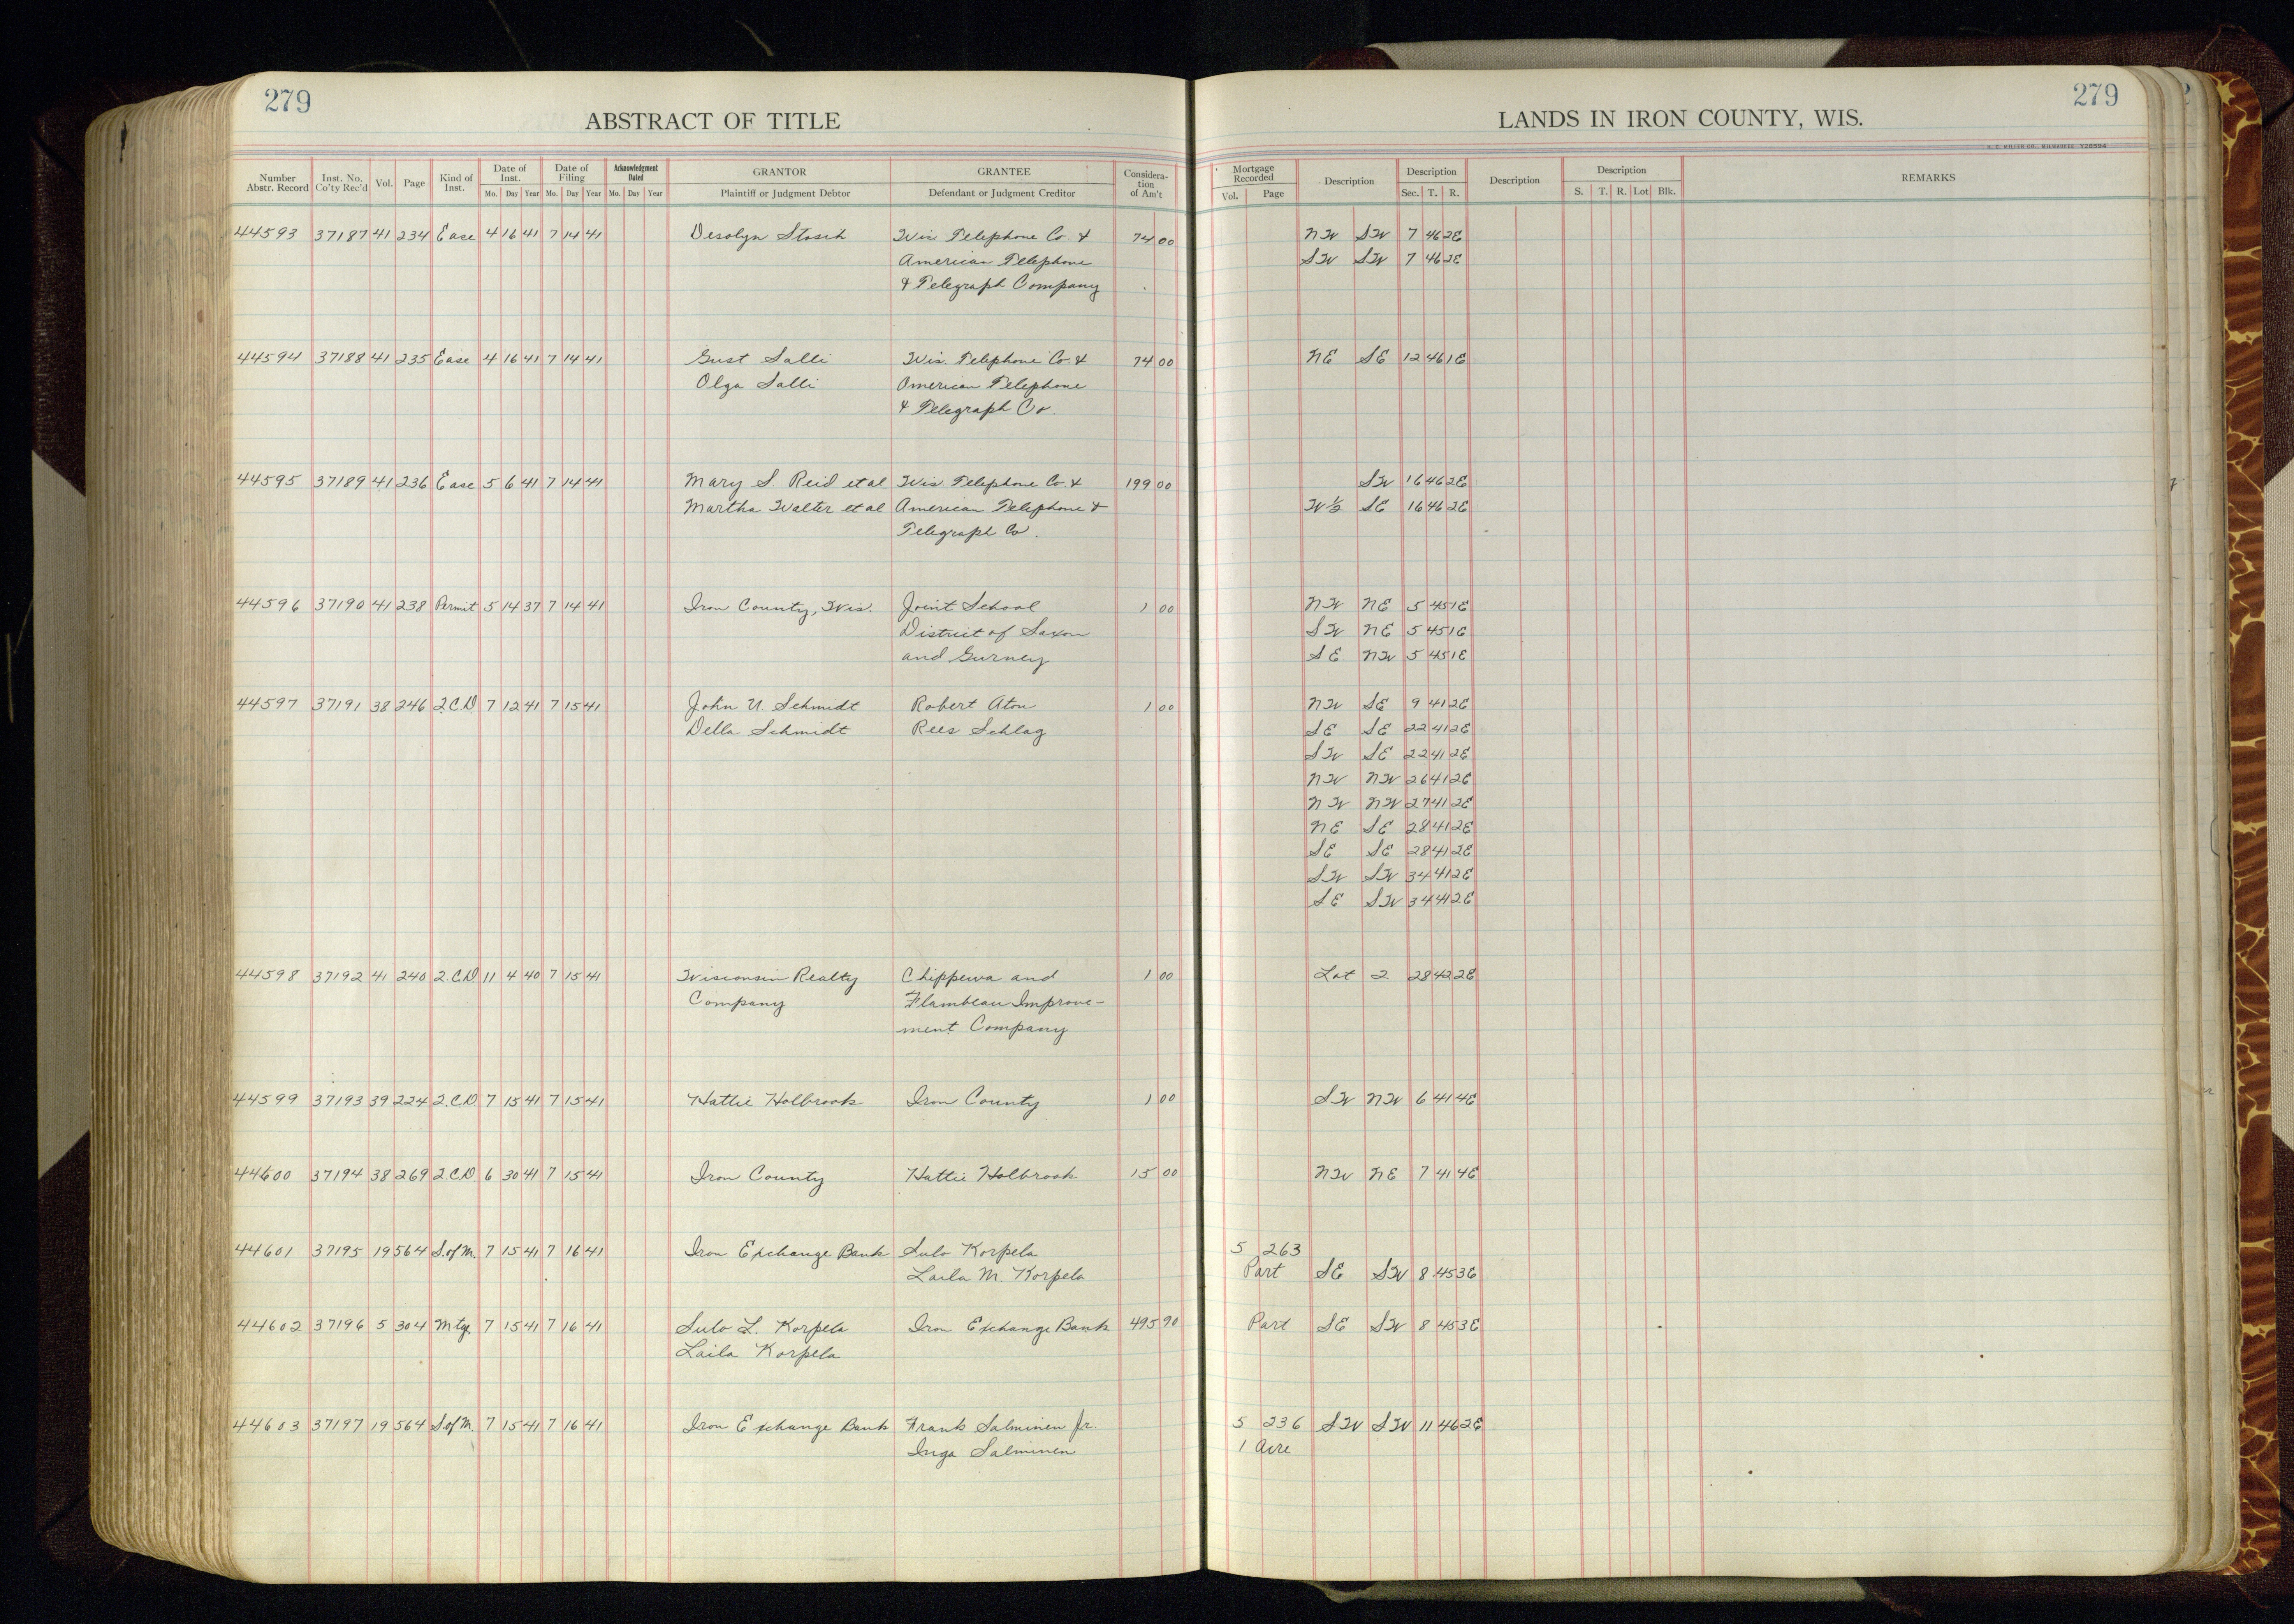 279
279
ABSTRACT OF TITLE
LANDS IN IRON COUNTY, WIS.
H. C. MILLER CO., MILWAUKEE Y28594
Number Abstr. Record | Inst. No. Co'ty Rec'd | Vol. | Page | Kind of Inst. | Date of Inst. Mo. Day Year | Date of Filing Mo. Day Year | Acknowledgment Dated Mo. Day Year | GRANTOR Plaintiff or Judgment Debtor | GRANTEE Defendant or Judgment Creditor | Consideration of Am't | Mortgage Recorded Vol. Page | Description | Description Sec. T. R. | Description | Description S. T. R. Lot Blk. | REMARKS
44593 37187 41 234 Ease 4 16 41 7 14 41 Desolyn Stosch Wis. Telephone Co. & 74 00 NW SW 7 46 2E
American Telephone SW SW 7 46 2E
& Telegraph Company
44594 37188 41 235 Ease 4 16 41 7 14 41 Gust Salli Wis. Telephone Co. & 74 00 NE SE 12 46 1E
Olga Salli American Telephone
& Telegraph Co.
44595 37189 41 236 Ease 5 6 41 7 14 41 Mary S. Reid et al Wis. Telephone Co. & 199 00 SW 16 46 2E
Martha Walter et al American Telephone & W½ SE 16 46 2E
Telegraph Co.
44596 37190 41 238 Permit 5 14 37 7 14 41 Iron County, Wis. Joint School 1 00 NW NE 5 45 1E
District of Saxon SW NE 5 45 1E
and Gurney SE NW 5 45 1E
44597 37191 38 246 2.C.D. 7 12 41 7 15 41 John U. Schmidt Robert Aton 1 00 NW SE 9 41 2E
Della Schmidt Rees Schlag SE SE 22 41 2E
SW SE 22 41 2E
NW NW 26 41 2E
NW NW 27 41 2E
NE SE 28 41 2E
SE SE 28 41 2E
SW SW 34 41 2E
SE SW 34 41 2E
44598 37192 41 240 2.C.D. 11 4 40 7 15 41 Wisconsin Realty Chippewa and 1 00 Lot 2 28 42 2E
Company Flambeau Improve-
ment Company
44599 37193 39 224 2.C.D. 7 15 41 7 15 41 Hattie Holbrook Iron County 1 00 SW NW 6 41 4E
44600 37194 38 269 2.C.D. 6 30 41 7 15 41 Iron County Hattie Holbrook 15 00 NW NE 7 41 4E
44601 37195 19 564 S.of M. 7 15 41 7 16 41 Iron Exchange Bank Sulo Korpela 5 263
Laila M. Korpela Part SE SW 8 45 3E
44602 37196 5 304 Mtg. 7 15 41 7 16 41 Sulo L. Korpela Iron Exchange Bank 495 90 Part SE SW 8 45 3E
Laila Korpela
44603 37197 19 564 S.of M. 7 15 41 7 16 41 Iron Exchange Bank Frank Salminen Jr. 5 236 SW SW 11 46 2E
Inga Salminen 1 Acre